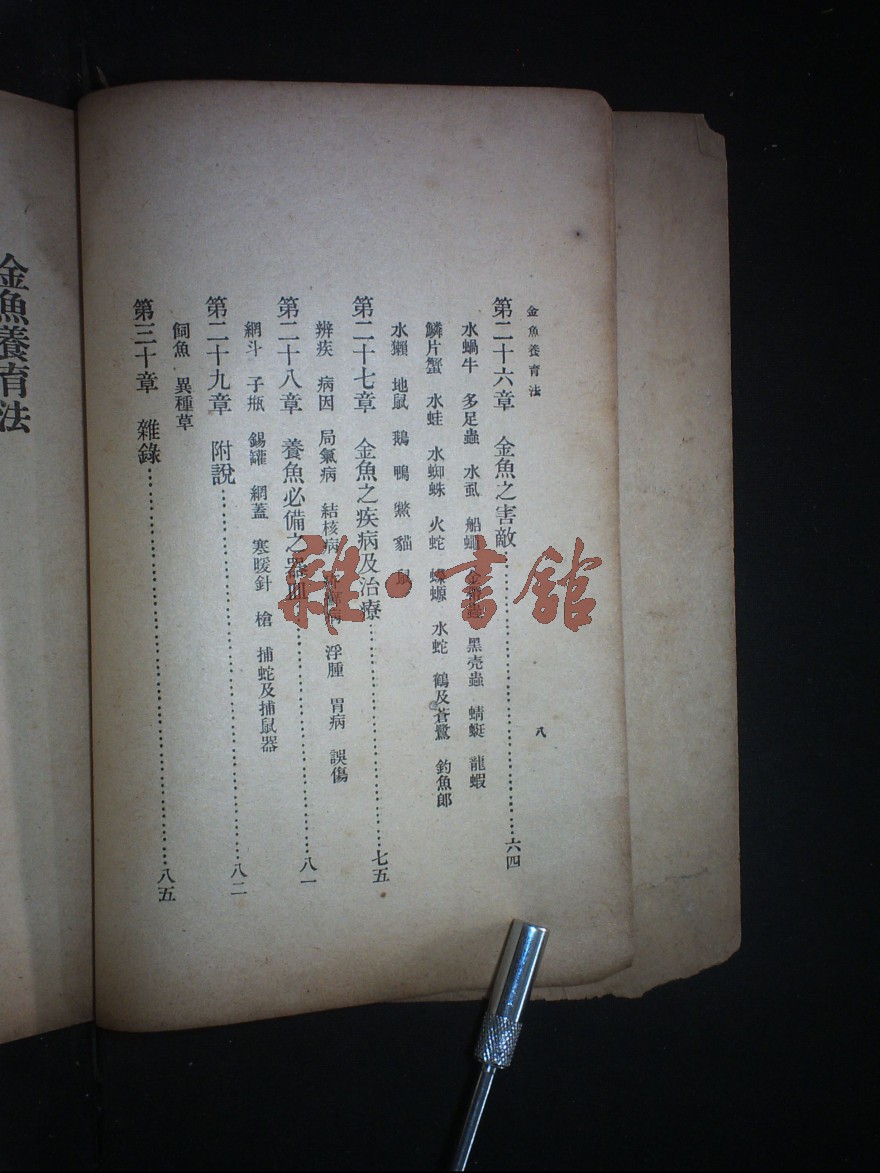 金魚養育法
八
第二十六章 金魚之害敵……………………六四
水蝸牛 多足蟲 水虱 船蠅 黑壳蟲 蜻蜓 龍蝦
鱗片蟹 水蛙 水蜘蛛 火蛇 蠑螈 水蛇 鶴及蒼鷺 釣魚郎
水獺 地鼠 鵝 鴨 鱉 貓 鼠
第二十七章 金魚之疾病及治療……………………七五
辨疾 病因 局氣病 結核病 浮腫 胃病 誤傷
第二十八章 養魚必備之器皿……………………八一
網斗 子瓶 錫罐 網蓋 寒暖針 槍 捕蛇及捕鼠器
第二十九章 附說……………………八二
飼魚 異種草
第三十章 雜錄……………………八五
金魚養育法
雜·書館